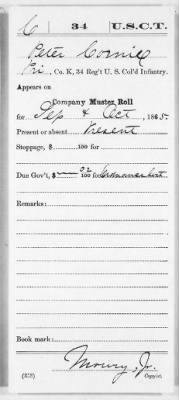 C 34 U.S.C.T.
Peter
Pri, Co. K, 34 Reg't U. S. Col'd Infantry.
Appears on
Company Muster Roll
for Sep & Oct, 1865.
Present or absent Present
Stoppage, $ 100 for
Due Gov't, $ 02/100 for
Remarks:
Book mark:
Mowry, Jr.
(358) Copyist.